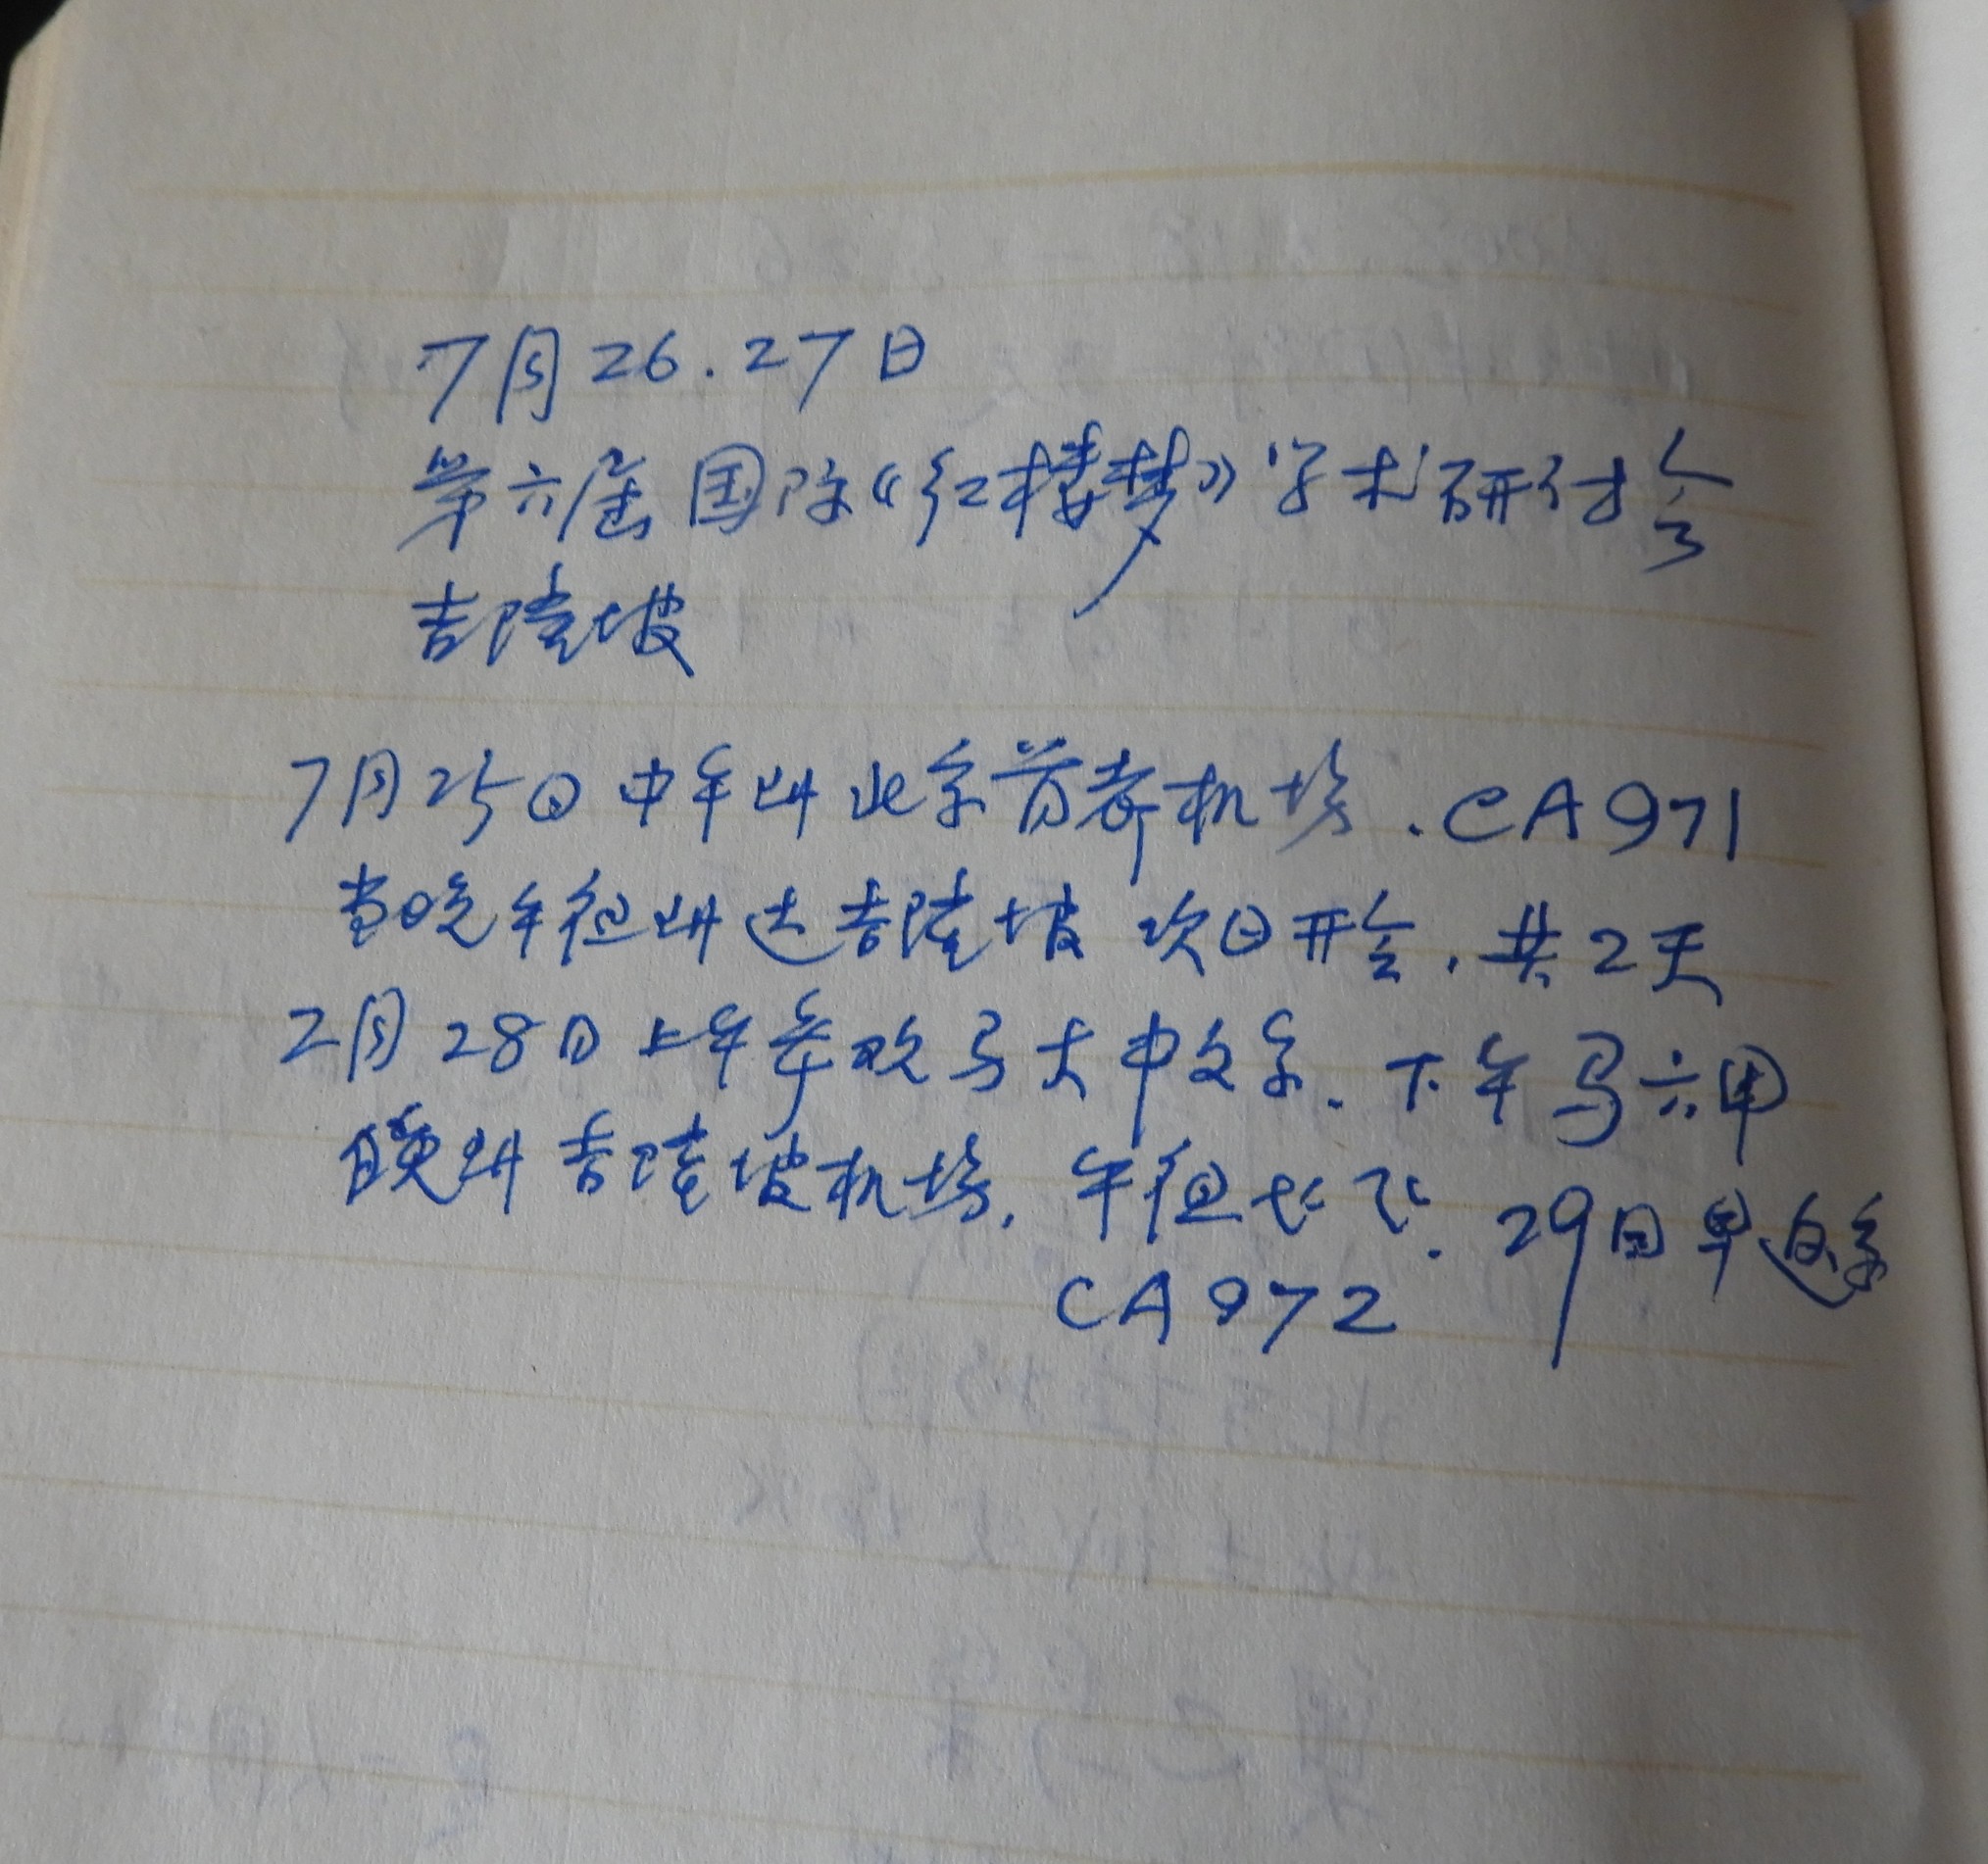 7月26.27日
第六届国际《红楼梦》学术研讨会
吉隆坡
7月25日中午班北京首都机场.CA971
当晚午夜班达吉隆坡 次日开会.共2天
2月28日上午参观马大中文系.下午马六甲
晚班吉隆坡机场.午夜起飞.29日早返京
CA972